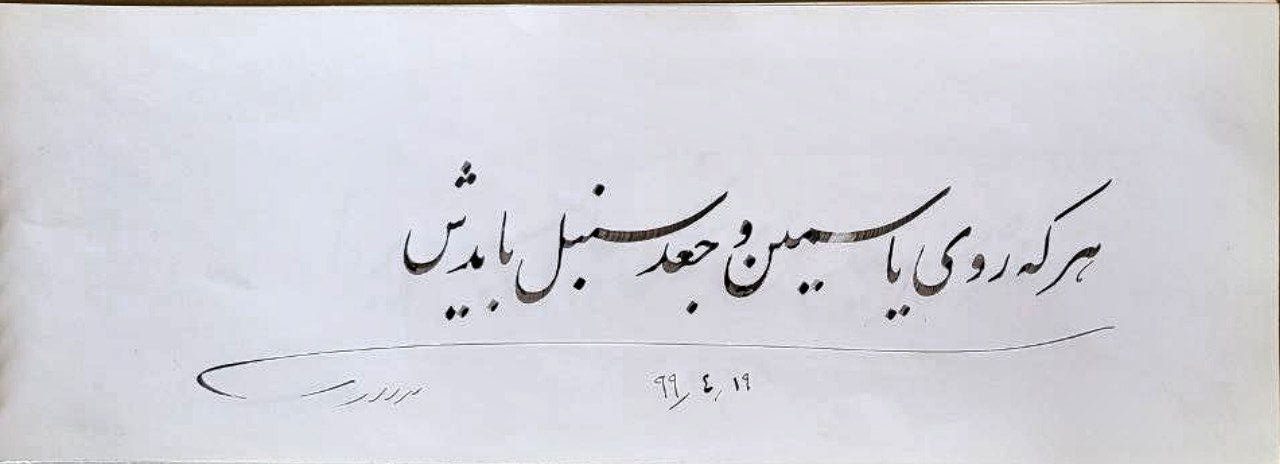 هر که روی یاسمین و جعد سنبل بایدش
۹۹/۴/۱۹